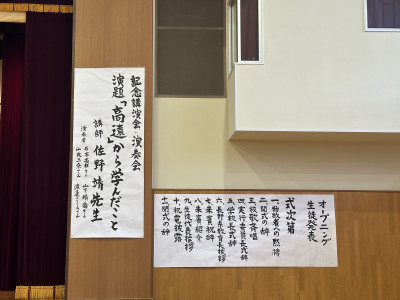 記念講演会・演奏会
演題「高遠」から学んだこと
講師 佐野 靖 先生
演奏者
オープニング
生徒発表
式次第
一、物故者への黙祷
二、開式の辞
三、校歌斉唱
四、実行委員長式辞
五、学校長式辞
六、長野県教育長挨拶
七、来賓祝辞
八、来賓紹介
九、生徒代表挨拶
十、祝電披露
十一、閉式の辞